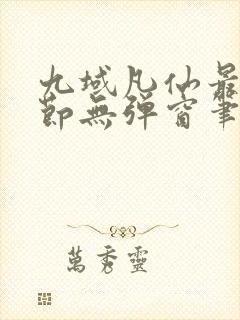 九域凡仙最
節無彈窗筆
萬秀靈